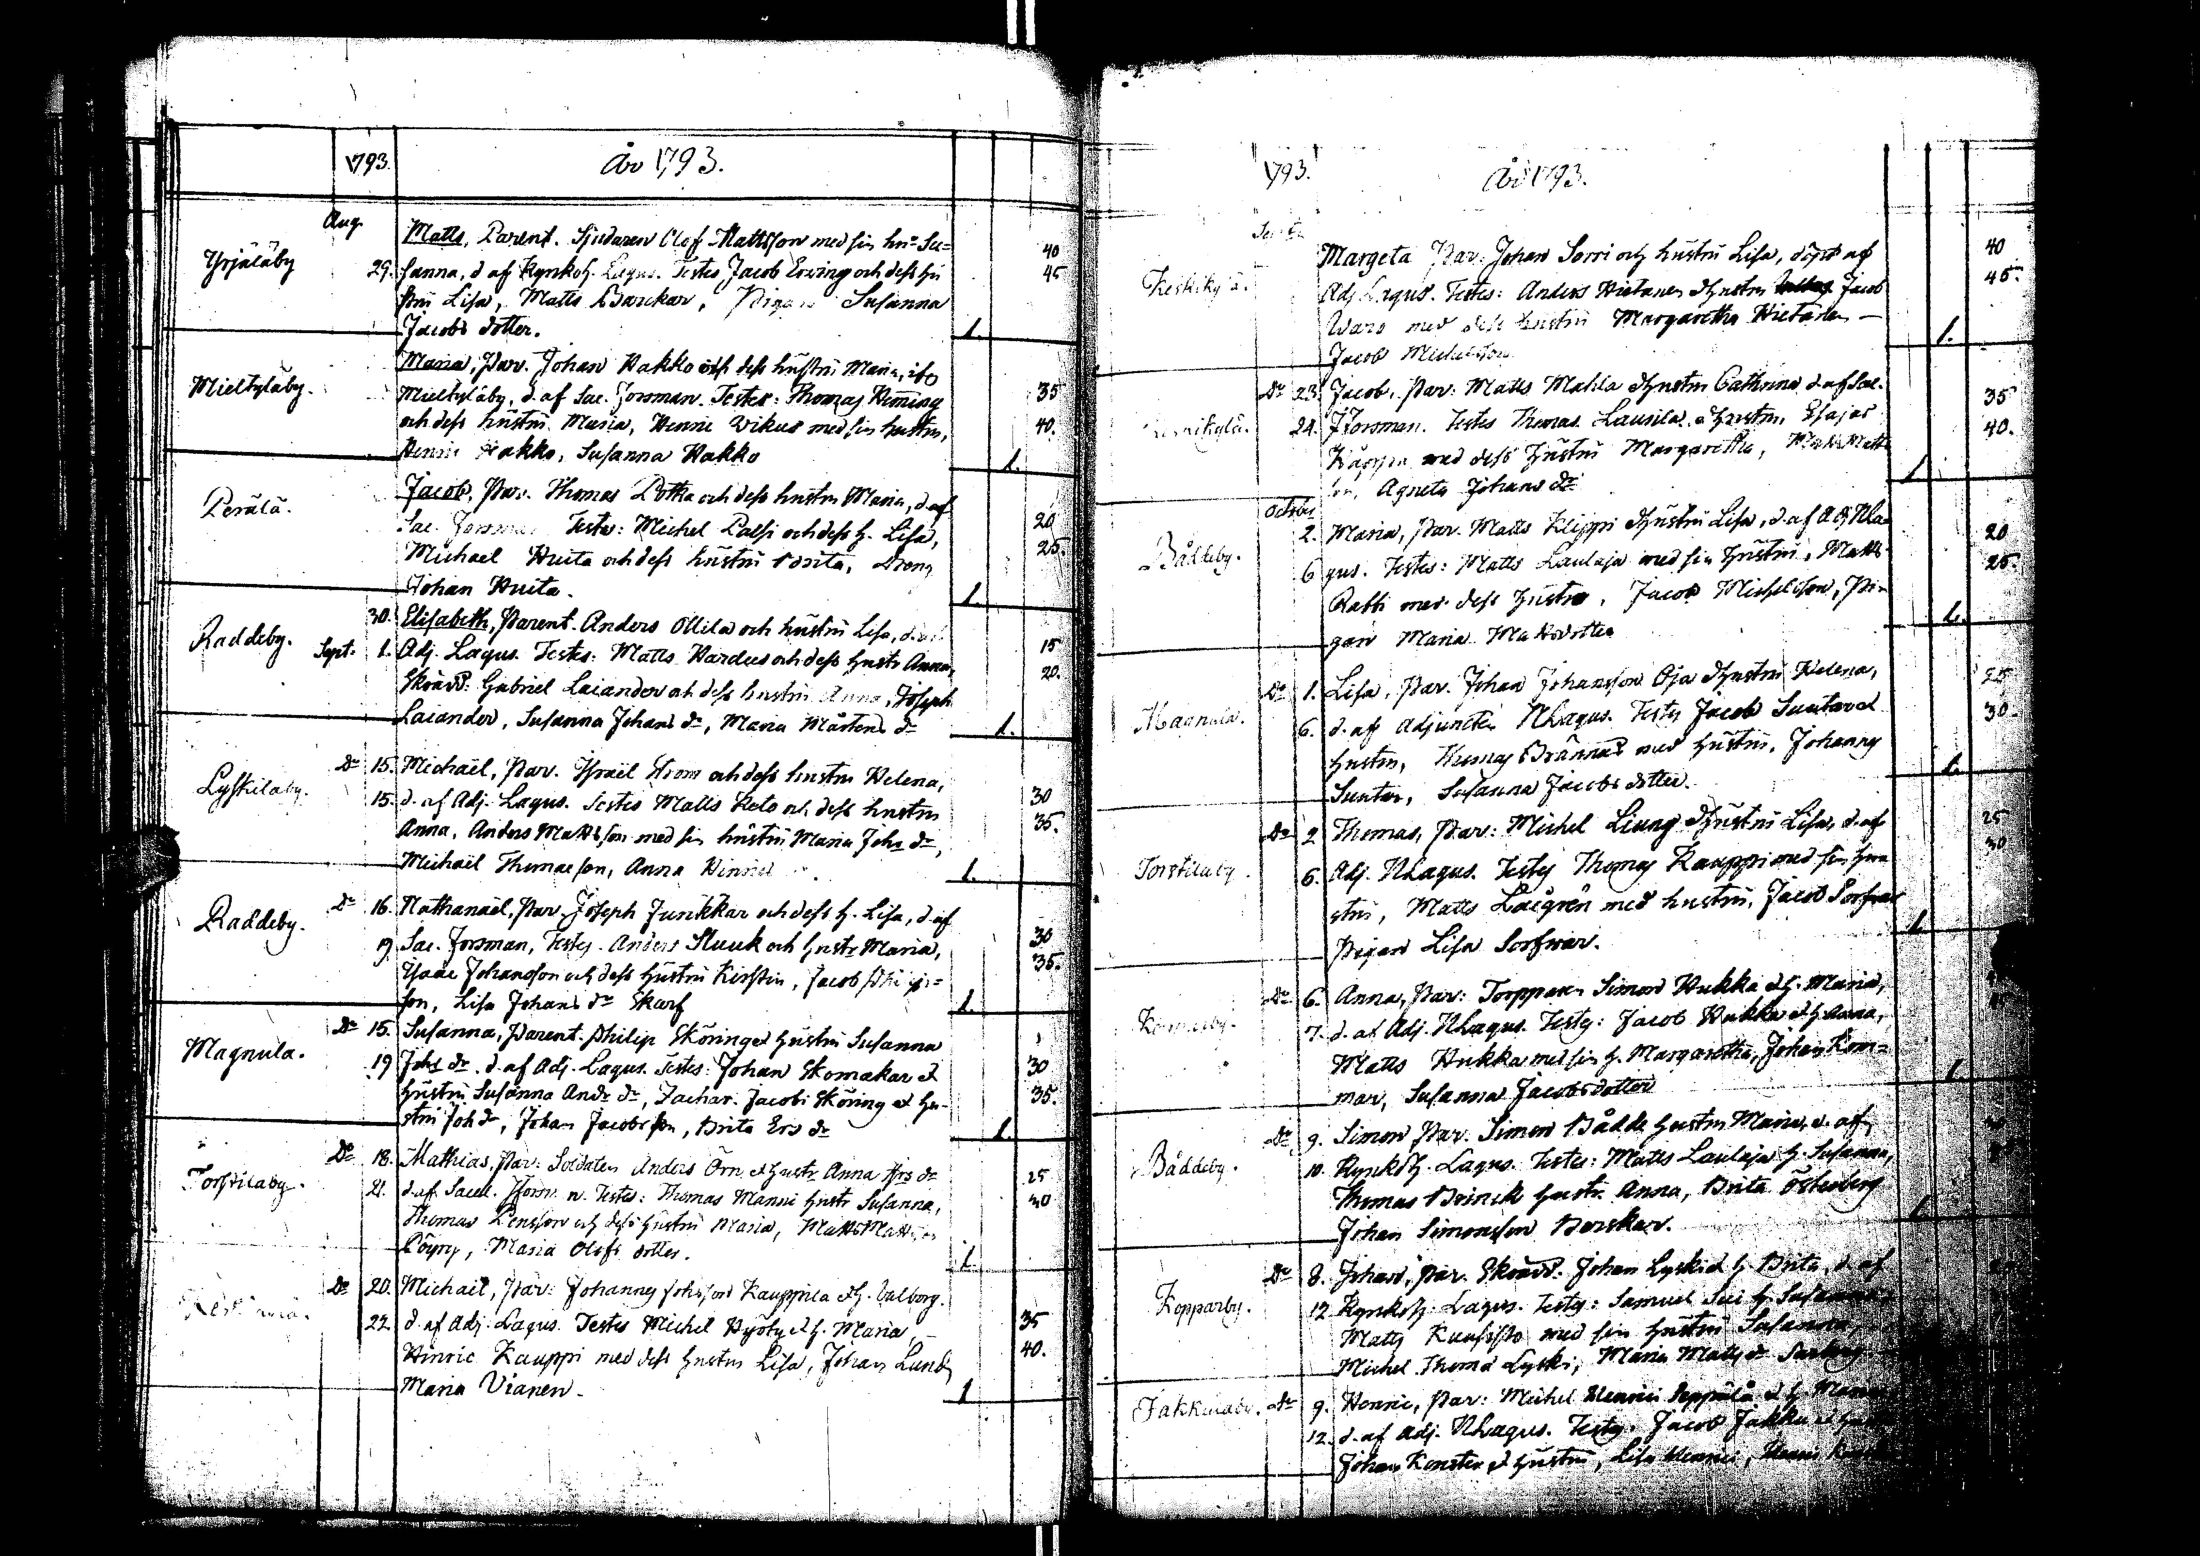 1793. År 1793.
Aug.
Yrjäläby
Matts, Parent. Sjudaren Olof Mattsson med sin hu= Su=
29. sanna, d. af Kyrkoh. Lagus. Testes, Jacob Erving och dess hu
stru Lisa, Matts Barckar, Pigan Susanna
Jacobs dotter.
40
45
1.
Mieltyläby.
Maria, Par. Johan Hakko och dess hustru Maria, ifr
Mieltyläby, d. af Sac. Forsman. Testes: Thomas Hening
och dess hustru Maria, Henric Vikus med sin hustru,
Henric Hakko, Susanna Hakko
35
40.
1.
Perälä.
Jacob, Par. Thomas Potka och dess hustru Maria, d. af
Sac. Forsman. Testes: Michel Palsi och dess h. Lisa,
Michael Huita och dess hustru Brita, Dreng
Johan Huita.
20
25.
1.
Raddeby.
30. Elisabeth, Parent. Anders Ollila och hustru Lisa, d. af
Sept. 1. Adj. Lagus. Testes: Matts Hardus och dess hustr Anna,
Skrädd: Gabriel Laiander och dess hustru Anna, Joseph
Laiander, Susanna Johans dr, Maria Mårtens dr
15
20.
1.
Lyskilaby.
Do 15. Michaël, Par. Israël Strom och dess hustru Helena,
15. d. af Adj. Lagus. Testes Matts Keto och dess hustru
Anna, Anders Mattsson med sin hustru Maria Johs dr,
Michaël Thomasson, Anna
30
35.
1.
Raddeby.
Do 16. Nathanaël, Par. Joseph Junkkar och dess h. Lisa, d. af
19. Sac. Forsman, Testes. Anders Sluuk och hustr Maria,
Isaac Johansson och dess hustru Kirstin, Jacob Philips=
son, Lisa Johans dr Skarf
30
35.
1.
Magnula.
Do 15. Susanna, Parent. Philip Sköring et hustru Susanna
19 Johs dr. d. af Adj. Lagus. Testes: Johan Skomakar et
hustru Susanna Ands dr, Zachar. Jacobi Sköring et hu-
stru Joh dr, Johan Jacobsson, Brita Ers dr
30
35.
1.
Torstilaby.
Do 18. Mathias, Par: Soldaten Anders Örn et hustr Anna Hrs dr
21. d. af Sacel. Testes: Thomas Manni hustr Susanna,
Thomas och dess hustru Maria, Matts Mattsson
Pöyry, Maria Olofs dotter.
25
30
1.
Do 20. Michaël, Par: Johannes Johsson Kauppila et h. Valborg.
22 d. af Adj. Lagus. Testes Michel Hyöty et h. Maria,
Hinric Kauppi med dess hustru Lisa, Johan Lund,
Maria Vianen.
35
40.
1
1793. År 1793.
Margeta Par: Johan Sorri och hustru Lisa, döpt af
Adj Lagus. Testes: Anders Hietanen et hustru Jacob
Wars med dess hustru Margaretha Hietanen –
Jacob Michelsson
40
45.
1.
Do 23. Jacob, Par: Matts Mahla et hustru Cathrina d. af Sac.
24. J Forsman. Testes Thomas Laurila et hustru, Esajas
Käppi med dess hustru Margaretha, Matts Matts
son, Agneta Johans dr
35
40.
1
Octobr
Båddeby.
2. Maria, Par. Matts Klippi et hustru Lisa, d. af Adj NLa=
6 gus. Testes: Matts Laulaja med sin hustru, Matts
Rabbi med dess hustru, Jacob Michelsson, Pi=
gan Maria Mattsdotter
20
25.
1.
Magnula.
Do 1. Lisa, Par. Johan Johansson Oja et hustru Helena,
6. d. af Adjuncten NLagus. Testes Jacob Suntar et
hustru, Thomas Brännas med hustru, Johannes
Suntar, Susanna Jacobs dotter.
25
30.
1.
Torstilaby.
Do 2 Thomas, Par: Michel Liung et hustru Lisa, d. af
6. Adj. NLagus. Testes Thomas Kauppi med sin hu
stru, Matts Laigrén med hustru, Jacob Sorfwar
Pigan Lisa Sorfwar.
25
30
1
Do 6. Anna, Par: Torpparen Simon Hukka et h. Maria,
7. d. af Adj. NLagus. Testes: Jacob Hukka et h. Anna,
Matts Hukka med sin h. Margaretha, Johan Kom=
mar, Susanna Jacobsdotter
1.
Båddeby.
Do 9. Simon Par. Simon Bådde hustru Maria, d. af
10. Kyrkoh. Lagus. Testes: Matts Laulaja h. Susanna,
Thomas Brinck hustr. Anna, Brita Österberg
Johan Simonsson Borskar.
1
Kopparby.
Do 8. Johan, Par. Skrädd. Johan Lyski et h. Brita, d. af
12 Kyrkoh. Lagus. Testes: Samuel Sui h. Susanna
Matts Kuusisto med sin hustru Susanna,
Michel Thoms Lyski, Maria Matts dr
Jakkulaby.
Do 9. Henric, Par: Michel Henrici Seppälä et h. Maria
12. d. af Adj. NLagus. Testes. Jacob Jakku et
Johan Konster et hustru, Lisa Henrici, Henric